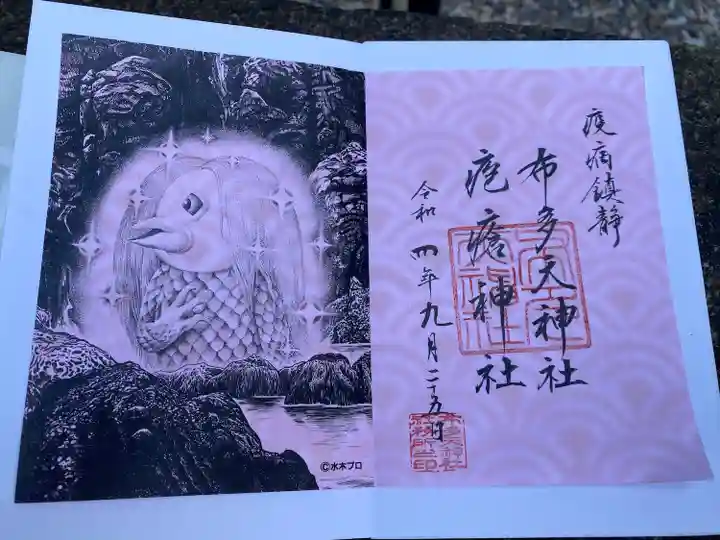 疫病鎮静
布多天神社
疱瘡神社
令和四年九月二十五日
©水木プロ